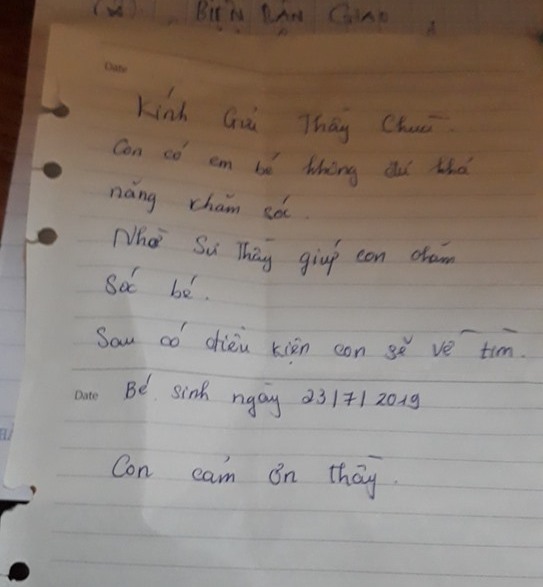 (x) BIÊN BẢN GIAO
Date
Kính Gửi Thầy Chùa.
Con có em bé không đủ khả
năng chăm sóc.
Nhờ Sư Thầy giúp con chăm
Sóc bé.
Sau có điều kiện con sẽ về tìm.
Date Bé sinh ngày 23/7/2019
Con cảm ơn thầy.